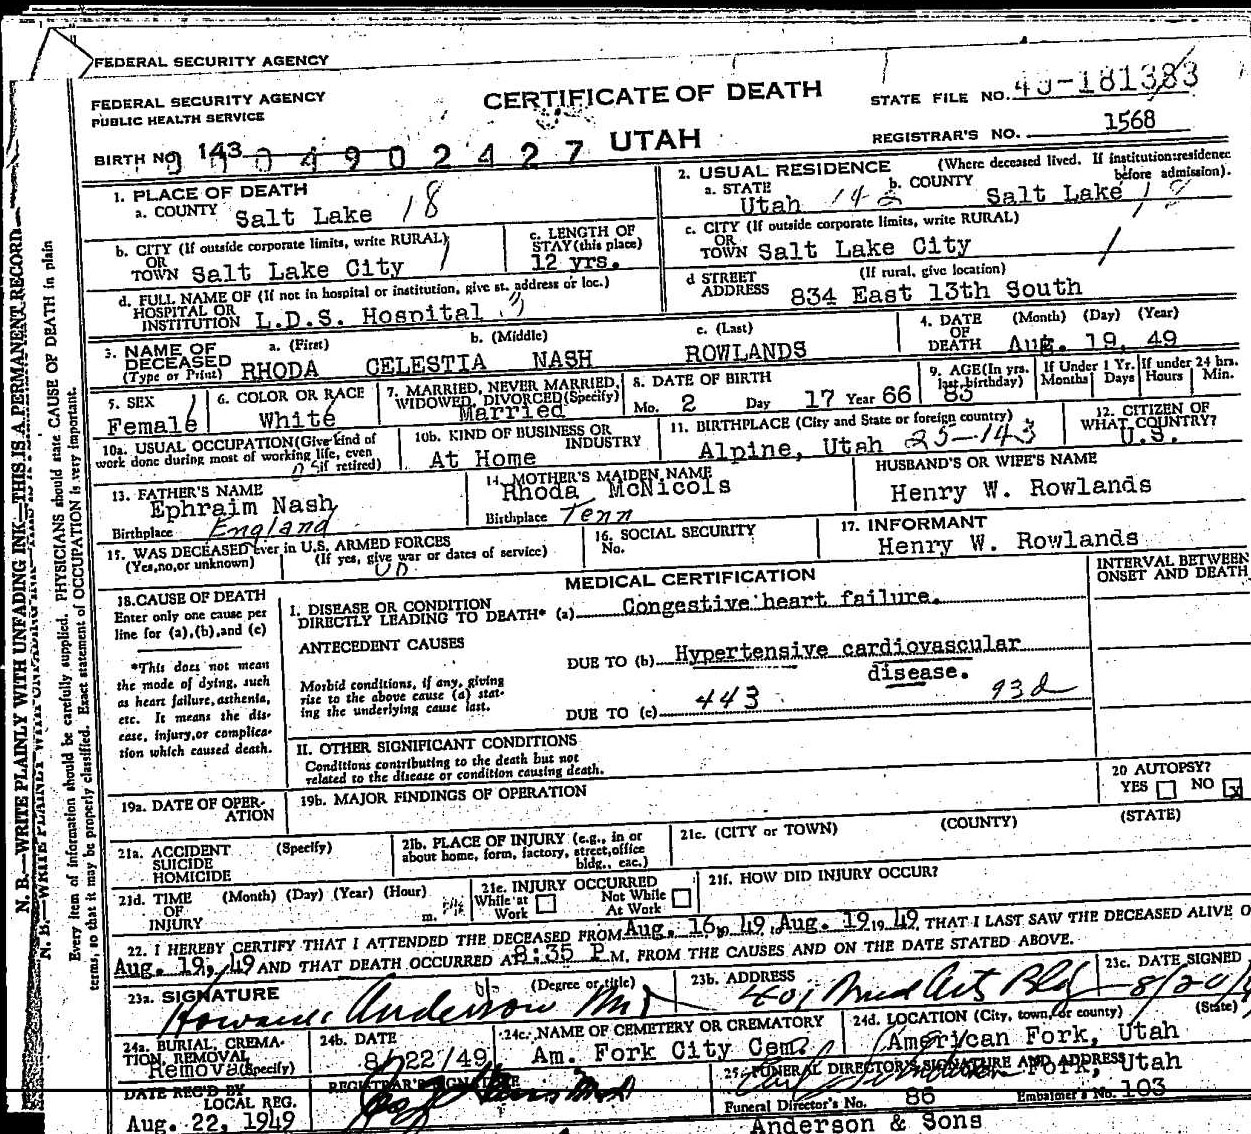 FEDERAL SECURITY AGENCY
FEDERAL SECURITY AGENCY
PUBLIC HEALTH SERVICE
CERTIFICATE OF DEATH
UTAH
STATE FILE NO. 49-181383
REGISTRAR'S NO. 1568
BIRTH NO. 143 9 0 0 4 9 0 2 4 2 7
N. B.—WRITE PLAINLY WITH UNFADING INK—THIS IS A PERMANENT RECORD
Every item of information should be carefully supplied. PHYSICIANS should state CAUSE OF DEATH in plain
terms, so that it may be properly classified. Exact statement of OCCUPATION is very important.
1. PLACE OF DEATH
a. COUNTY Salt Lake 18
2. USUAL RESIDENCE (Where deceased lived. If institution: residence before admission).
a. STATE Utah 142 b. COUNTY Salt Lake
b. CITY (If outside corporate limits, write RURAL)
OR
TOWN Salt Lake City
c. LENGTH OF
STAY (this place)
12 yrs.
c. CITY (If outside corporate limits, write RURAL)
OR
TOWN Salt Lake City
d. FULL NAME OF (If not in hospital or institution, give st. address or loc.)
HOSPITAL OR
INSTITUTION L.D.S. Hospital
d STREET
ADDRESS (If rural, give location)
834 East 13th South
3. NAME OF
DECEASED
(Type or Print)
a. (First) b. (Middle) c. (Last)
RHODA CELESTIA NASH ROWLANDS
4. DATE
OF
DEATH
(Month) (Day) (Year)
Aug. 19, 49
5. SEX
Female
6. COLOR OR RACE
White
7. MARRIED, NEVER MARRIED,
WIDOWED, DIVORCED (Specify)
Married
8. DATE OF BIRTH
Mo. 2 Day 17 Year 66
9. AGE (In yrs.
last birthday)
83
If Under 1 Yr.
Months Days
If under 24 hrs.
Hours Min.
10a. USUAL OCCUPATION (Give kind of
work done during most of working life, even
if retired)
10b. KIND OF BUSINESS OR
INDUSTRY
At Home
11. BIRTHPLACE (City and State or foreign country)
Alpine, Utah 25-143
12. CITIZEN OF
WHAT COUNTRY?
U.S.
13. FATHER'S NAME
Ephraim Nash
Birthplace England
14. MOTHER'S MAIDEN NAME
Rhoda McNicols
Birthplace Tenn
HUSBAND'S OR WIFE'S NAME
Henry W. Rowlands
15. WAS DECEASED Ever in U.S. ARMED FORCES
(Yes, no, or unknown) (If yes, give war or dates of service)
16. SOCIAL SECURITY
No.
17. INFORMANT
Henry W. Rowlands
MEDICAL CERTIFICATION
INTERVAL BETWEEN
ONSET AND DEATH
18. CAUSE OF DEATH
Enter only one cause per
line for (a), (b), and (c)
*This does not mean
the mode of dying, such
as heart failure, asthenia,
etc. It means the dis-
ease, injury, or complica-
tion which caused death.
I. DISEASE OR CONDITION
DIRECTLY LEADING TO DEATH* (a) Congestive heart failure.
ANTECEDENT CAUSES
DUE TO (b) Hypertensive cardiovascular
disease.
Morbid conditions, if any, giving
rise to the above cause (a) stat-
ing the underlying cause last.
DUE TO (c) 443 93d
II. OTHER SIGNIFICANT CONDITIONS
Conditions contributing to the death but not
related to the disease or condition causing death.
19a. DATE OF OPER-
ATION
19b. MAJOR FINDINGS OF OPERATION
20 AUTOPSY?
YES NO x
21a. ACCIDENT (Specify)
SUICIDE
HOMICIDE
21b. PLACE OF INJURY (e.g., in or
about home, form, factory, street, office
bldg., eac.)
21c. (CITY or TOWN) (COUNTY) (STATE)
21d. TIME (Month) (Day) (Year) (Hour)
OF
INJURY m.
21e. INJURY OCCURRED
While at
Work
Not While
At Work
21f. HOW DID INJURY OCCUR?
22. I HEREBY CERTIFY THAT I ATTENDED THE DECEASED FROM Aug. 16, 19 49, Aug. 19, 19 49, THAT I LAST SAW THE DECEASED ALIVE O
Aug. 19, 49 AND THAT DEATH OCCURRED AT 8:35 P M, FROM THE CAUSES AND ON THE DATE STATED ABOVE.
23a. SIGNATURE (Degree or title)
Anderson MD
23b. ADDRESS
401 Med Arts Bldg
23c. DATE SIGNED
8/20/4
24a. BURIAL, CREMA-
TION, REMOVAL
Removal (Specify)
24b. DATE
8/22/49
24c. NAME OF CEMETERY OR CREMATORY
Am. Fork City Cem.
24d. LOCATION (City, town, or county) (State)
American Fork, Utah
DATE REC'D BY
LOCAL REG.
Aug. 22, 1949
REGISTRAR'S SIGNATURE
25. FUNERAL DIRECTOR'S SIGNATURE AND ADDRESS
Fork, Utah
Funeral Director's No. 86 Embalmer's No. 103
Anderson & Sons